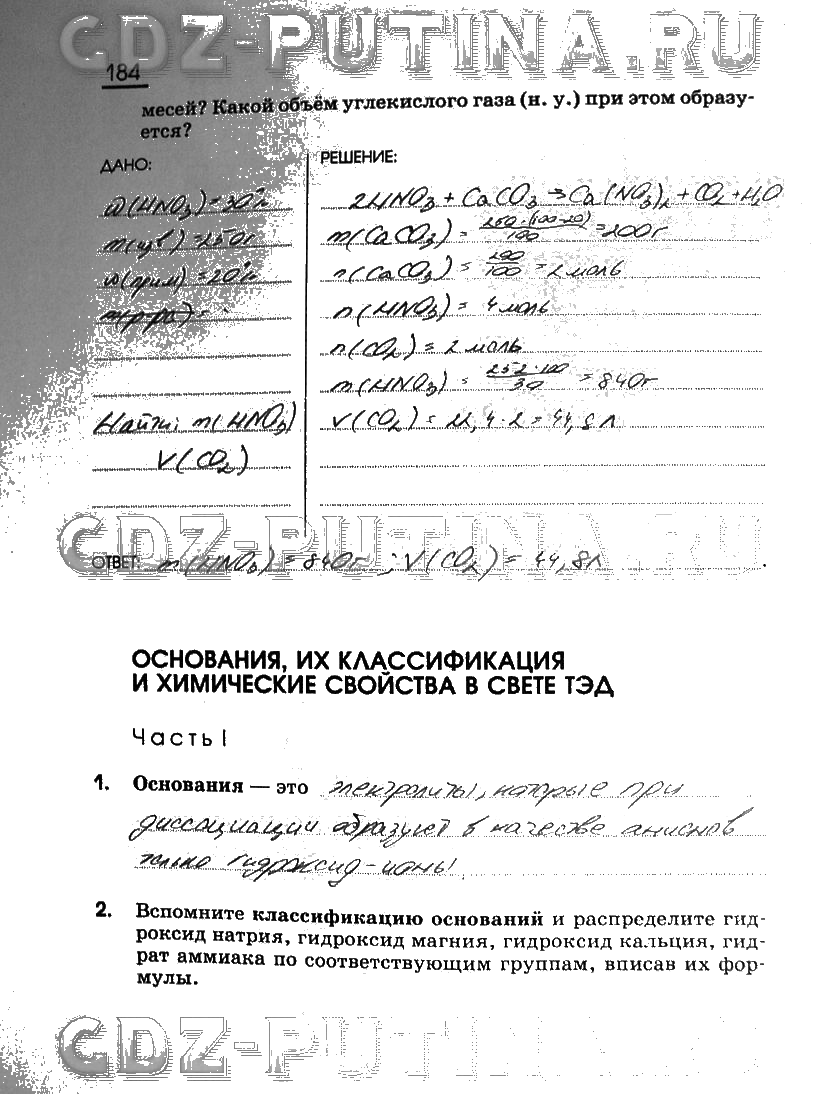 GDZ-PUTINA.RU
184
месей? Какой объём углекислого газа (н. у.) при этом образу-
ется?
ДАНО:
ω(HNO₃) = 30%
m(изв) = 250г
ω(прим) = 20%
m(р-ра) =
Найти: m(HNO₃)
V(CO₂)
РЕШЕНИЕ:
2HNO₃ + CaCO₃ → Ca(NO₃)₂ + CO₂ + H₂O
m(CaCO₃) = 250·(100-20)/100 = 200г
n(CaCO₃) = 200/100 = 2 моль
n(HNO₃) = 4 моль
n(CO₂) = 2 моль
m(HNO₃) = 252·100/30 = 840г
V(CO₂) = 22,4·2 = 44,8 л
GDZ-PUTINA.RU
ОТВЕТ: m(HNO₃) = 840г ; V(CO₂) = 44,8л.
ОСНОВАНИЯ, ИХ КЛАССИФИКАЦИЯ
И ХИМИЧЕСКИЕ СВОЙСТВА В СВЕТЕ ТЭД
Часть I
1. Основания — это электролиты, которые при
диссоциации образуют в качестве анионов
только гидроксид-ионы.
2. Вспомните классификацию оснований и распределите гид-
роксид натрия, гидроксид магния, гидроксид кальция, гид-
рат аммиака по соответствующим группам, вписав их фор-
мулы.
GDZ-PUTINA.RU